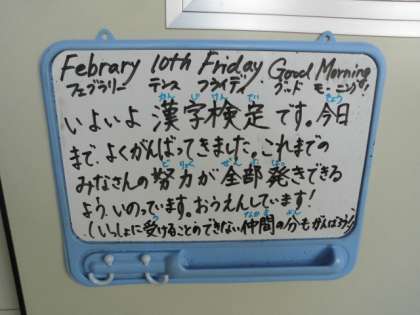 Febrary 10th Friday Good Morning
フェブラリー テンス フライディ グッド モーニング!
いよいよ漢字検定です。今日
まで、よくがんばってきました。これまでの
みなさんの努力が全部発きできる
よう、いのっています。おうえんしています!
(いっしょに受けることのできない仲間の分もがんばろう!)